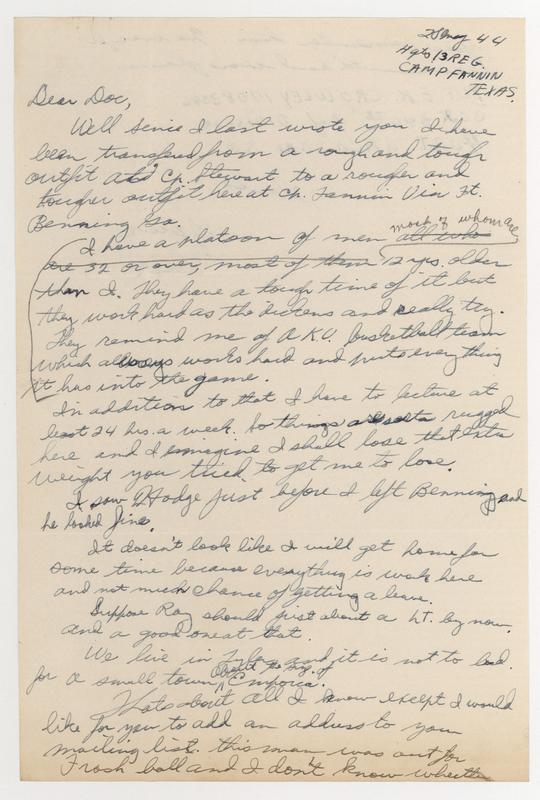 28 May 44
Hqts 13 REG.
CAMP FANNIN
TEXAS.
Dear Doc,
Well since I last wrote you I have
been transfered from a rough and tough
outfit at Cp. Stewart to a rougher and
tougher outfit here at Cp. Fannin Via Ft.
Benning Ga.
most of whom are,
I have a platoon of men all who
are 32 or over, most of them 12 yrs. older
than I. They have a tough time of it but
they work hard as the dickens and really try.
They remind me of a K.U. basketball team
which always works hard and puts everything
it has into the game.
In addition to that I have to lecture at
least 24 hrs. a week. So things are rugged
here and I imagine I shall lose that extra
weight you tried to get me to lose.
I saw Hodge just before I left Benning and
he looked fine.
It doesn't look like I will get home for
some time because everything is work here
and not much chance of getting a leave.
Suppose Ray should just about a LT. by now.
and a good one at that.
We live in Tyler and it is not to bad.
about the size of
for a small town Emporia.
Thats about all I know except I would
like for you to add an address to your
mailing list. this man was out for
Frosh ball and I don't know wheether